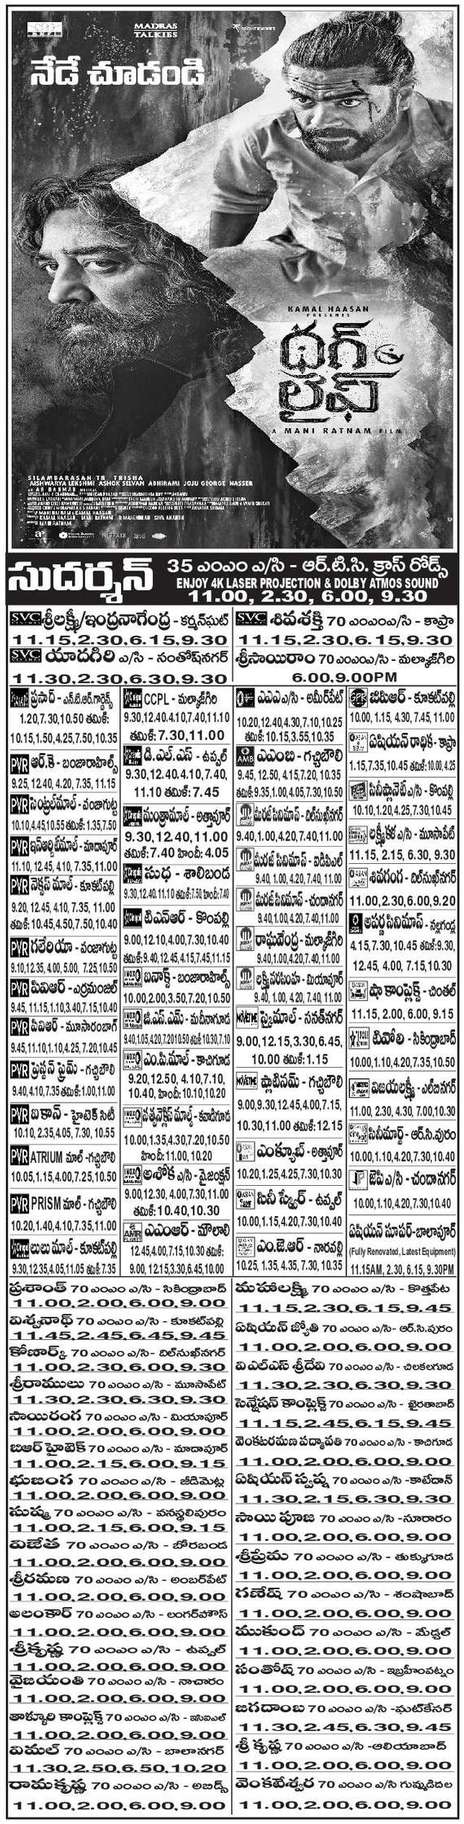 MADRAS
TALKIES
నేడే చూడండి
KAMAL HAASAN
PRESENTS
థగ్
లైఫ్
A MANI RATNAM FILM
SILAMBARASAN TR TRISHA
AISHWARYA LEKSHMI ASHOK SELVAN ABHIRAMI JOJU GEORGE NASSER
సుదర్శన్ 35 ఎంఎం ఎ/సి - ఆర్.టి.సి. క్రాస్ రోడ్స్
ENJOY 4K LASER PROJECTION & DOLBY ATMOS SOUND
11.00, 2.30, 6.00, 9.30
SVC శ్రీలక్ష్మి/ఇంద్రనాగేంద్ర - కర్మన్‌ఘాట్
11.15,2.30,6.15,9.30
SVC యాదగిరి ఎ/సి - సంతోష్‌నగర్
11.30,2.30,6.30,9.30
SVC శివశక్తి 70 ఎంఎంఎ/సి - కాప్రా
11.15,2.30,6.15,9.30
శ్రీసాయిరాం 70ఎంఎంఎ/సి - మల్కాజ్‌గిరి
6.00,9.00PM
ప్రసాద్ - ఎన్.టి.ఆర్.గార్డెన్స్
1.20,7.30,10.50 తమిళ్:
10.15,1.50,4.25,7.50,10.35
PVR ఆర్.కె - బంజారాహిల్స్
9.25, 12.40, 4.20, 7.35, 11.15
PVR సెంట్రల్‌మాల్ - పంజాగుట్ట
10.10,4.45,10.55 తమిళ్:1.35,7.50
PVR ఇనార్బిట్‌మాల్ - మాదాపూర్
11.10, 12.45, 4.10, 7.35, 11.00
PVR నెక్సస్ మాల్ - కూకట్‌పల్లి
9.20, 12.45, 4.10, 7.35, 11.00
తమిళ్: 10.45,4.50,7.50,10.40
PVR గలేరియా - పంజాగుట్ట
9.10,12.35, 4.00, 5.00, 7.25,10.50
PVR పివిఆర్ - ఎర్రమంజిల్
9.45,11.15,1.10,3.40,7.15,10.40
PVR పివిఆర్ - మూసారంబాగ్
9.45,11.10,1.10,4.25,7.20,10.45
PVR ప్రెస్టన్ ప్రైమ్ - గచ్చిబౌలి
9.40,4.10,7.35,1.00,11.00
PVR ఐకాన్ - హైటెక్ సిటీ
10.10,2.35,4.05, 7.30, 10.55
PVR ATRIUM మాల్ - గచ్చిబౌలి
10.05,1.15,4.00,7.25,10.50
PVR PRISM మాల్ - గచ్చిబౌలి
10.20,1.40,4.10,7.35,11.00
లులు మాల్ - కూకట్‌పల్లి
9.30,12.35,4.05,11.05 తమిళ్: 7.35
CCPL - మల్కాజ్‌గిరి
9.30,12.40,4.10,7.40,11.10
తమిళ్: 7.30,11.00
డి.ఎల్.ఎస్ - ఉప్పల్
9.30,12.40,4.10, 7.40,
11.10 తమిళ్: 7.45
మంత్రామాల్ - అత్తాపూర్
9.30,12.40,11.00
తమిళ్:7.40 హిందీ: 4.05
సుధ - శాలిబండ
9.30,12.40,11.10 తమిళ్:7.30, హిందీ:7.40
టిఎన్ఆర్ - కొంపల్లి
9.00,12.10,4.00,7.30,10.40
తమిళ్: 9.40,12.45,4.15,7.45,11.15
ఐనాక్స్ - బంజారాహిల్స్
10.00,2.00,3.50,7.20,10.50
జి.ఎస్.ఎమ్ - మదీనాగూడ
9.40,1.05,4.20,7.20,10.50 తమిళ్: 10.30,7.30
ఎం.పి.మాల్ - కాచిగూడ
9.20,12.50, 4.10,7.10,
10.40, హిందీ: 10.10,10.20
సత్వనెక్లెస్ మాల్ - కవాడిగూడ
10.00,1.35,4.30,7.20,10.50
హిందీ: 11.00, 10.20
అశోక ఎ/సి - వైజంక్షన్
9.00,12.30, 4.00,7.30,11.00
తమిళ్: 10.40,10.30
ఎఎంఆర్ - మౌలాలి
12.45,4.00,7.15,10.30 తమిళ్:
9.00, 12.15,3.30,6.45,10.00
ఎఎఎ ఎ/సి - అమీర్‌పేట్
10.20,12.40,4.30,7.10,10.25
తమిళ్: 10.15,3.55,10.35
AMB ఎఎంబి - గచ్చిబౌలి
9.45, 12.50, 4.15,7.20, 10.35
తమిళ్: 9.35,1.00,4.05,7.30,10.50
మిరజ్ సినిమాస్ - దిల్‌సుఖ్‌నగర్
9.40,1.00,4.20,7.40, 11.00
మిరజ్ సినిమాస్ - ఐడిపిఎల్
9.40,1.00, 4.20,7.40, 11.00
మిరజ్ సినిమాస్ - చందానగర్
9.40,1.00, 4.20,7.40, 11.00
రాఘవేంద్ర - మల్కాజ్‌గిరి
9.40,1.00,4.20,7.40,11.00
లక్ష్మీనరసింహ - మియాపూర్
9.40, 1.00, 4.20, 7.40, 11.00
ప్రైమ్‌మాల్ - సనత్‌నగర్
9.00,12.15,3.30,6.45,
10.00 తమిళ్: 1.15
ప్లాటినమ్ - గచ్చిబౌలి
9.00,9.30,12.45,4.00,7.15,
10.30,11.00 తమిళ్: 12.15
ఎంక్యూబ్ - అత్తాపూర్
10.20,1.25,4.25,7.30,10.30
సినీ స్క్వేర్ - ఉప్పల్
10.00,1.15,4.20, 7.30, 10.40
ఎం.జె.ఆర్ - నారపల్లి
10.25, 1.35, 4.35, 7.30, 10.35
జిపిఆర్ - కూకట్‌పల్లి
10.00,1.15, 4.30, 7.45, 11.00
ఏషియన్ రాధిక - కాప్రా
1.15,7.35,10.45 తమిళ్: 10.00,4.25
సినీప్లానెట్ ఎ/సి - కొంపల్లి
10.10,1.20,4.25,7.30,10.45
లక్ష్మికళ ఎ/సి - మూసాపేట్
11.15, 2.15, 6.30, 9.30
శివగంగ - దిల్‌సుఖ్‌నగర్
11.00,2.00,6.20,9.20
అపర్ణ సినిమాస్ - నల్లగండ్ల
4.15,7.30,10.45 తమిళ్:9.30,
12.45, 4.00, 7.15,10.30
షా కాంప్లెక్స్ - చింతల్
11.15, 2.00, 6.00, 9.15
టివోలి - సికింద్రాబాద్
10.00,1.10,4.20,7.35,10.50
విజయలక్ష్మి - ఎల్‌బినగర్
11.00, 2.30, 4.30, 7.00,10.30
సినీమార్ట్ - ఆర్.సి.పురం
10.00,1.10,4.20,7.30,10.40
జెపి ఎ/సి - చందానగర్
10.00,1.10,4.20,7.30,10.40
ఏషియన్ సూపర్-బాలాపూర్
(Fully Renovated, Latest Equipment)
11.15AM, 2.30, 6.15, 9.30PM
ప్రశాంత్ 70 ఎంఎం ఎ/సి - సికింద్రాబాద్
11.00,2.00,6.00,9.00
విశ్వనాథ్ 70 ఎంఎం ఎ/సి - కూకట్‌పల్లి
11.45,2.45,6.45,9.45
కోణార్క్ 70 ఎంఎం ఎ/సి - దిల్‌సుఖ్‌నగర్
11.00,2.30,6.00,9.30
శ్రీరాములు 70 ఎంఎం ఎ/సి - మూసాపేట్
11.30,2.30,6.30,9.30
సాయిరంగ 70 ఎంఎం ఎ/సి - మియాపూర్
11.00,2.00,6.00,9.00
బిఆర్ హైటెక్ 70 ఎంఎం ఎ/సి - మాదాపూర్
11.00,2.15,6.00,9.15
భుజంగ 70 ఎంఎం ఎ/సి - జీడిమెట్ల
11.00,2.00,6.00,9.00
సుష్మ 70 ఎంఎం ఎ/సి - వనస్థలిపురం
11.00,2.15,6.00,9.15
విజేత 70 ఎంఎం ఎ/సి - బోరబండ
11.00,2.00,6.00,9.00
శ్రీరమణ 70 ఎంఎం ఎ/సి - అంబర్‌పేట్
11.00,2.00,6.00,9.00
అలంకార్ 70 ఎంఎం ఎ/సి - లంగర్‌హౌస్
11.00,2.00,6.00,9.00
శ్రీకృష్ణ 70 ఎంఎం ఎ/సి - ఉప్పల్
11.00,2.00,6.00,9.00
వైజయంతి 70 ఎంఎం ఎ/సి - నాచారం
11.00,2.00,6.00,9.00
తాళ్ళూరి కాంప్లెక్స్ 70 ఎంఎం ఎ/సి - ఇసిఐఎల్
11.00,2.00,6.00,9.00
విమల్ 70 ఎంఎం ఎ/సి - బాలానగర్
11.30,2.50,6.50,10.20
రామకృష్ణ 70 ఎంఎం ఎ/సి - అబిడ్స్
11.00,2.00,6.00,9.00
మహాలక్ష్మి 70 ఎంఎం ఎ/సి - కొత్తపేట
11.15,2.30,6.15,9.45
ఏషియన్ జ్యోతి 70 ఎంఎం ఎ/సి- ఆర్.సి.పురం
11.00,2.00,6.00,9.00
విఎల్ఎస్ శ్రీదేవి 70 ఎంఎం ఎ/సి - చిలకలగూడ
11.30,2.30,6.30,9.30
సెన్షేషన్ కాంప్లెక్స్ 70 ఎంఎం ఎ/సి - ఖైరతాబాద్
11.15,2.45,6.15,9.45
వెంకటరమణ పద్మావతి 70 ఎంఎంఎ/సి - కాచిగూడ
11.00,2.00,6.00,9.00
ఏషియన్ స్వప్న 70 ఎంఎం ఎ/సి - కాటేదాన్
11.30,2.15,6.30,9.30
సాయి పూజ 70 ఎంఎం ఎ/సి -సూరారం
11.00,2.00,6.00,9.00
శ్రీప్రేమ 70 ఎంఎం ఎ/సి - తుక్కుగూడ
11.00,2.00,6.00,9.00
గణేష్ 70 ఎంఎం ఎ/సి - శంషాబాద్
11.00,2.00,6.00,9.00
ముకుంద్ 70 ఎంఎం ఎ/సి - మేడ్చల్
11.00,2.00,6.00,9.00
సంతోష్ 70 ఎంఎం ఎ/సి - ఇబ్రహీంపట్నం
11.00,2.00,6.00,9.00
జగదాంబ 70 ఎంఎం ఎ/సి -ఘట్‌కేసర్
11.30,2.45,6.30,9.45
శ్రీ కృష్ణ 70 ఎంఎం ఎ/సి -ఆలియాబాద్
11.00,2.00,6.00,9.00
వెంకటేశ్వర 70 ఎంఎం ఎ/సి గుమ్మడిదల
11.00,2.00,6.00,9.00